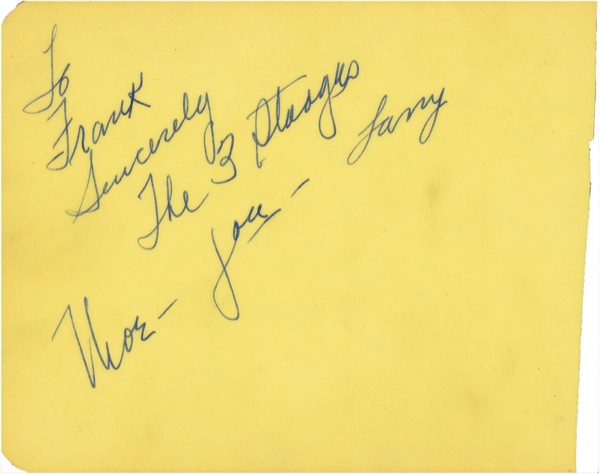 To
Frank
Sincerely
The 3 Stooges
Moe - Joe - Larry